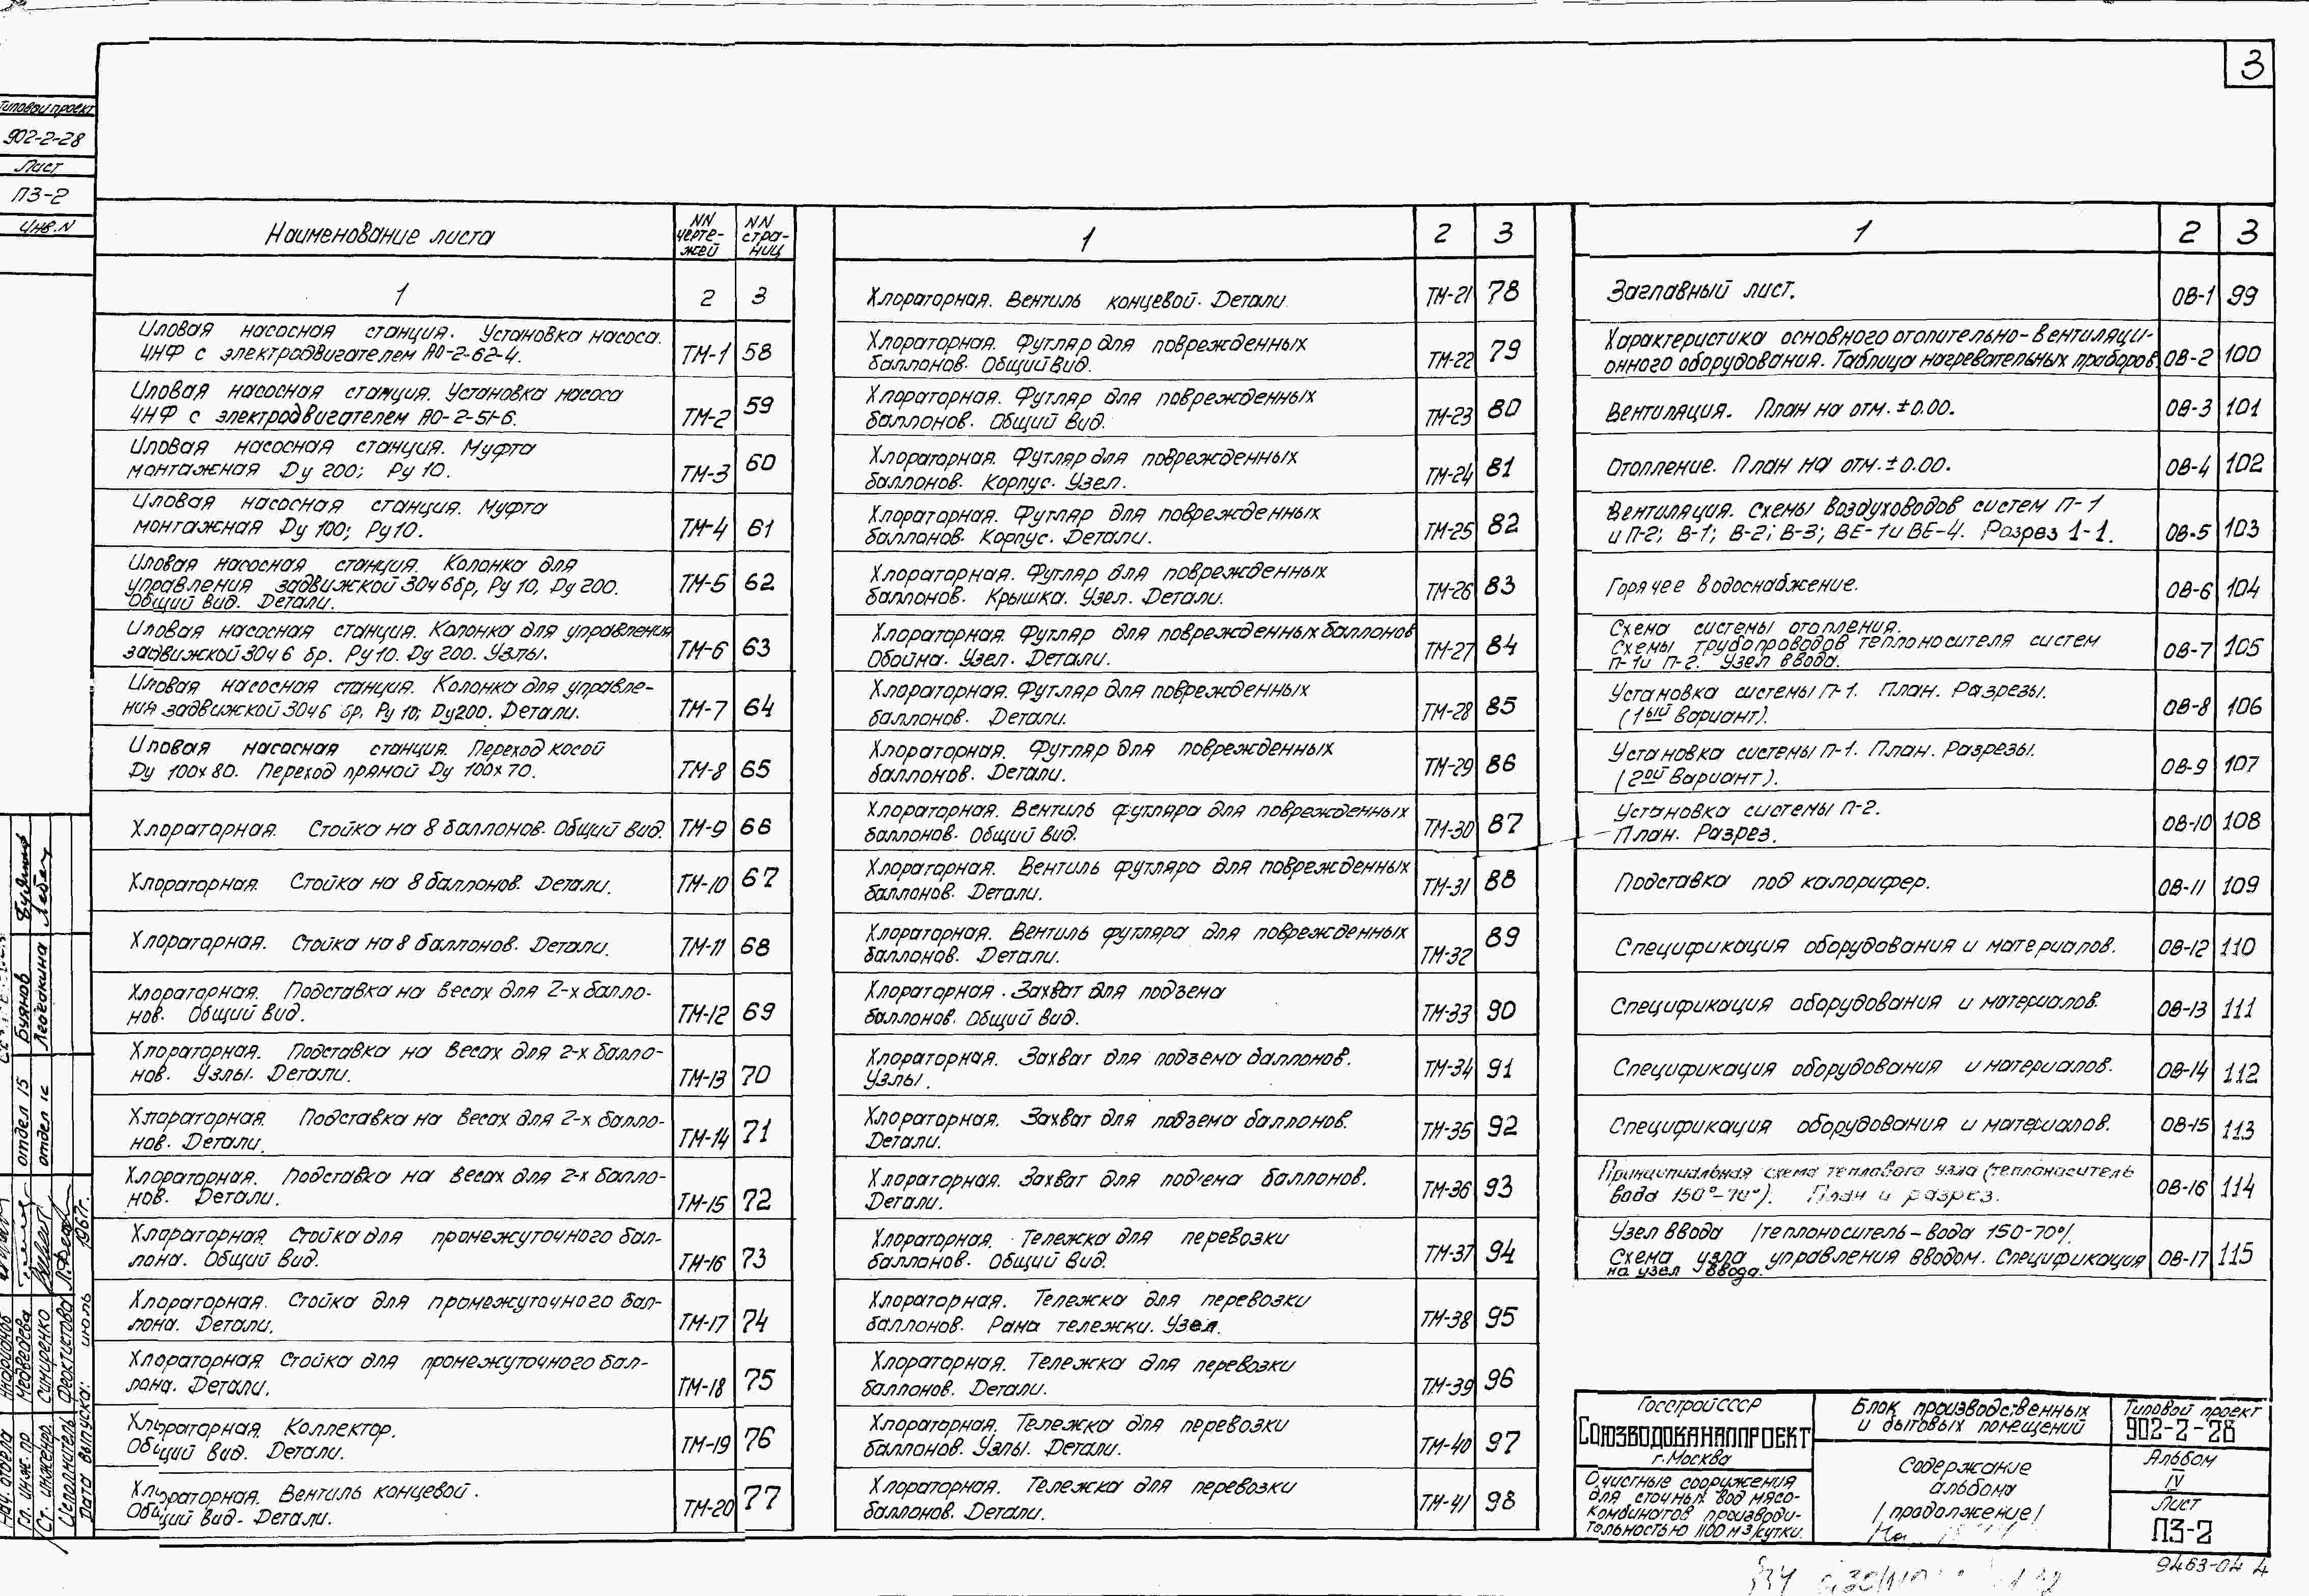 3
Типовой проект
902-2-28
Лист
ПЗ-2
Инв.N
Наименование листа
NN чертежей
NN страниц
1 2 3
Иловая насосная станция. Установка насоса.
4НФ с электродвигателем АО-2-62-4. ТМ-1 58
Иловая насосная станция. Установка насоса
4НФ с электродвигателем АО-2-51-6. ТМ-2 59
Иловая насосная станция. Муфта
монтажная Dу 200; Ру 10. ТМ-3 60
Иловая насосная станция. Муфта
монтажная Dу 100; Ру10. ТМ-4 61
Иловая насосная станция. Колонка для
управления задвижкой 30ч6бр, Ру 10, Dу 200.
Общий вид. Детали. ТМ-5 62
Иловая насосная станция. Колонка для управления
задвижкой 30ч 6 бр. Ру10. Dу 200. Узлы. ТМ-6 63
Иловая насосная станция. Колонка для управле-
ния задвижкой 30ч6 бр, Ру 10; Dу200. Детали. ТМ-7 64
Иловая насосная станция. Переход косой
Dу 100х80. Переход прямой Dу 100х70. ТМ-8 65
Хлораторная. Стойка на 8 баллонов. Общий вид. ТМ-9 66
Хлораторная. Стойка на 8 баллонов. Детали. ТМ-10 67
Хлораторная. Стойка на 8 баллонов. Детали. ТМ-11 68
Хлораторная. Подставка на весах для 2-х балло-
нов. Общий вид. ТМ-12 69
Хлораторная. Подставка на весах для 2-х балло-
нов. Узлы. Детали. ТМ-13 70
Хлораторная Подставка на весах для 2-х балло-
нов. Детали. ТМ-14 71
Хлораторная. Подставка на весах для 2-х балло-
нов. Детали. ТМ-15 72
Хлораторная. Стойка для промежуточного бал-
лона. Общий вид. ТМ-16 73
Хлораторная. Стойка для промежуточного бал-
лона. Детали. ТМ-17 74
Хлораторная. Стойка для промежуточного бал-
лона. Детали. ТМ-18 75
Хлораторная. Коллектор.
Общий вид. Детали. ТМ-19 76
Хлораторная. Вентиль концевой.
Общий вид. Детали. ТМ-20 77
1 2 3
Хлораторная. Вентиль концевой. Детали ТМ-21 78
Хлораторная. Футляр для поврежденных
баллонов. Общий вид. ТМ-22 79
Хлораторная. Футляр для поврежденных
баллонов. Общий вид. ТМ-23 80
Хлораторная. Футляр для поврежденных
баллонов. Корпус. Узел. ТМ-24 81
Хлораторная. Футляр для поврежденных
баллонов. Корпус. Детали. ТМ-25 82
Хлораторная. Футляр для поврежденных
баллонов. Крышка. Узел. Детали. ТМ-26 83
Хлораторная. Футляр для поврежденных баллонов
Обойма. Узел. Детали. ТМ-27 84
Хлораторная. Футляр для поврежденных
баллонов. Детали. ТМ-28 85
Хлораторная. Футляр для поврежденных
баллонов. Детали. ТМ-29 86
Хлораторная. Вентиль футляра для поврежденных
баллонов. Общий вид. ТМ-30 87
Хлораторная. Вентиль футляра для поврежденных
баллонов. Детали. ТМ-31 88
Хлораторная. Вентиль футляра для поврежденных
баллонов. Детали. ТМ-32 89
Хлораторная. Захват для подъема
баллонов. Общий вид. ТМ-33 90
Хлораторная. Захват для подъема баллонов.
Узлы. ТМ-34 91
Хлораторная. Захват для подъема баллонов.
Детали. ТМ-35 92
Хлораторная. Захват для под'ема баллонов.
Детали. ТМ-36 93
Хлораторная. Тележка для перевозки
баллонов. Общий вид. ТМ-37 94
Хлораторная. Тележка для перевозки
баллонов. Рама тележки. Узел. ТМ-38 95
Хлораторная. Тележка для перевозки
баллонов. Детали. ТМ-39 96
Хлораторная. Тележка для перевозки
баллонов. Узлы. Детали. ТМ-40 97
Хлораторная. Тележка для перевозки
баллонов. Детали. ТМ-41 98
1 2 3
Заглавный лист. ОВ-1 99
Характеристика основного отопительно-вентиляци-
онного оборудования. Таблица нагревательных приборов ОВ-2 100
Вентиляция. План на отм. ±0.00. ОВ-3 101
Отопление. План на отм. ±0.00. ОВ-4 102
Вентиляция. Схемы воздуховодов систем П-1
и П-2; В-1; В-2; В-3; ВЕ-1и ВЕ-4. Разрез 1-1. ОВ-5 103
Горячее водоснабжение. ОВ-6 104
Схема системы отопления.
Схемы трубопроводов теплоносителя систем
П-1и П-2. Узел ввода. ОВ-7 105
Установка системы П-1. План. Разрезы.
(1ый вариант). ОВ-8 106
Установка системы П-1. План. Разрезы.
(2ой вариант). ОВ-9 107
Установка системы П-2.
План. Разрез. ОВ-10 108
Подставка под калорифер. ОВ-11 109
Спецификация оборудования и материалов. ОВ-12 110
Спецификация оборудования и материалов. ОВ-13 111
Спецификация оборудования и материалов. ОВ-14 112
Спецификация оборудования и материалов. ОВ-15 113
Принципиальная схема теплового узла (теплоноситель
вода 150°-70°). План и разрез. ОВ-16 114
Узел ввода /теплоноситель-вода 150-70°/.
Схема узла управления вводом. Спецификация
на узел ввода. ОВ-17 115
Госстрой СССР
СОЮЗВОДОКАНАЛПРОЕКТ
г. Москва
Очистные сооружения
для сточных вод мясо-
комбинатов производи-
тельностью 1100 м3/сутки.
Блок производственных
и бытовых помещений
Содержание
альбома
/продолжение/
Типовой проект
902-2-28
Альбом
IV
Лист
ПЗ-2
9463-04 4
Буянов
Лебедкина
отдел 15
отдел 1с
Нач. отдела
Гл. инж. пр. Медведева
Ст. инженер Симиренко
Исполнитель Феоктистова
Дата выпуска: июль 1967г.